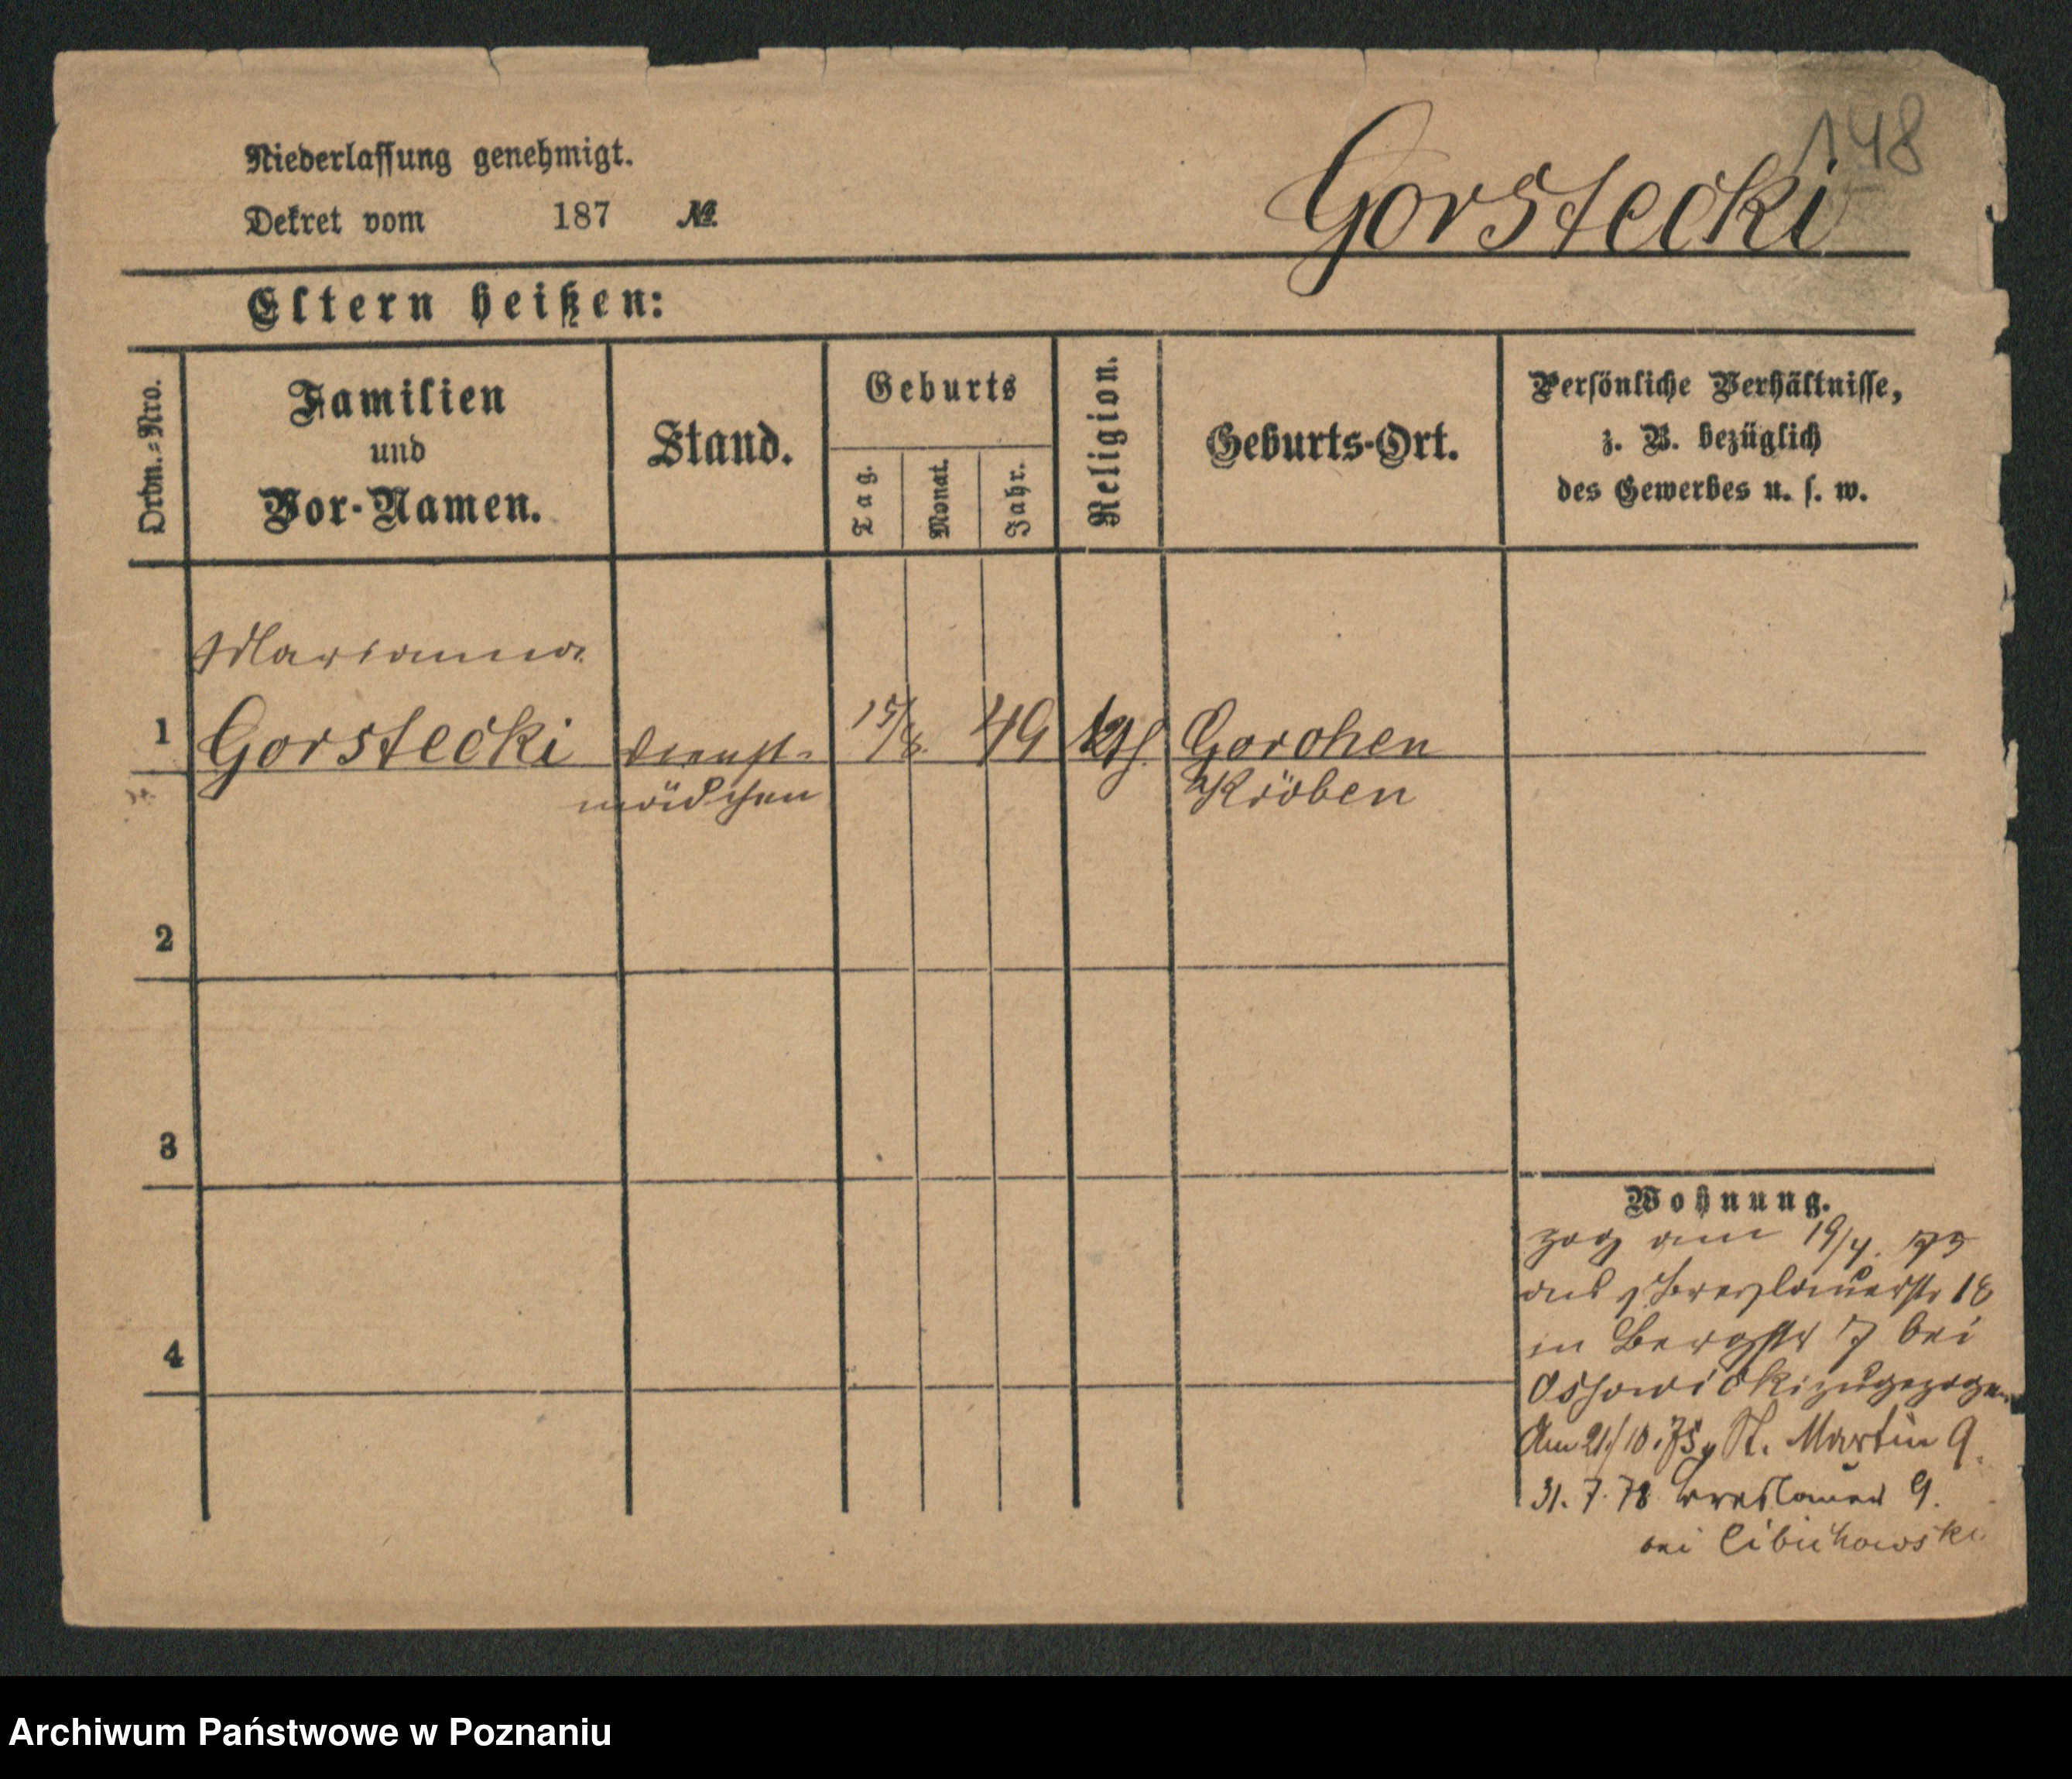 148
Niederlassung genehmigt.
Dekret vom 187 №
Gorstecki
Eltern heißen:
Ordn.-Nro.
Familien
und
Vor-Namen.
Stand.
Geburts
Tag.
Monat.
Jahr.
Religion.
Geburts-Ort.
Persönliche Verhältnisse,
z. B. bezüglich
des Gewerbes u. s. w.
Marianna
1 Gorstecki Dienst- 15/8. 49 kth. Gorchen
mädchen Kröben
2
3
4
Wohnung.
zog am 19/4. 75
aus Breslauerstr 18
in Bergstr 7 bei
Ossowicki zugezogen
Am 21/10.75, St. Martin 9.
31.7.78 Breslauer 9.
bei Cibichowski
Archiwum Państwowe w Poznaniu